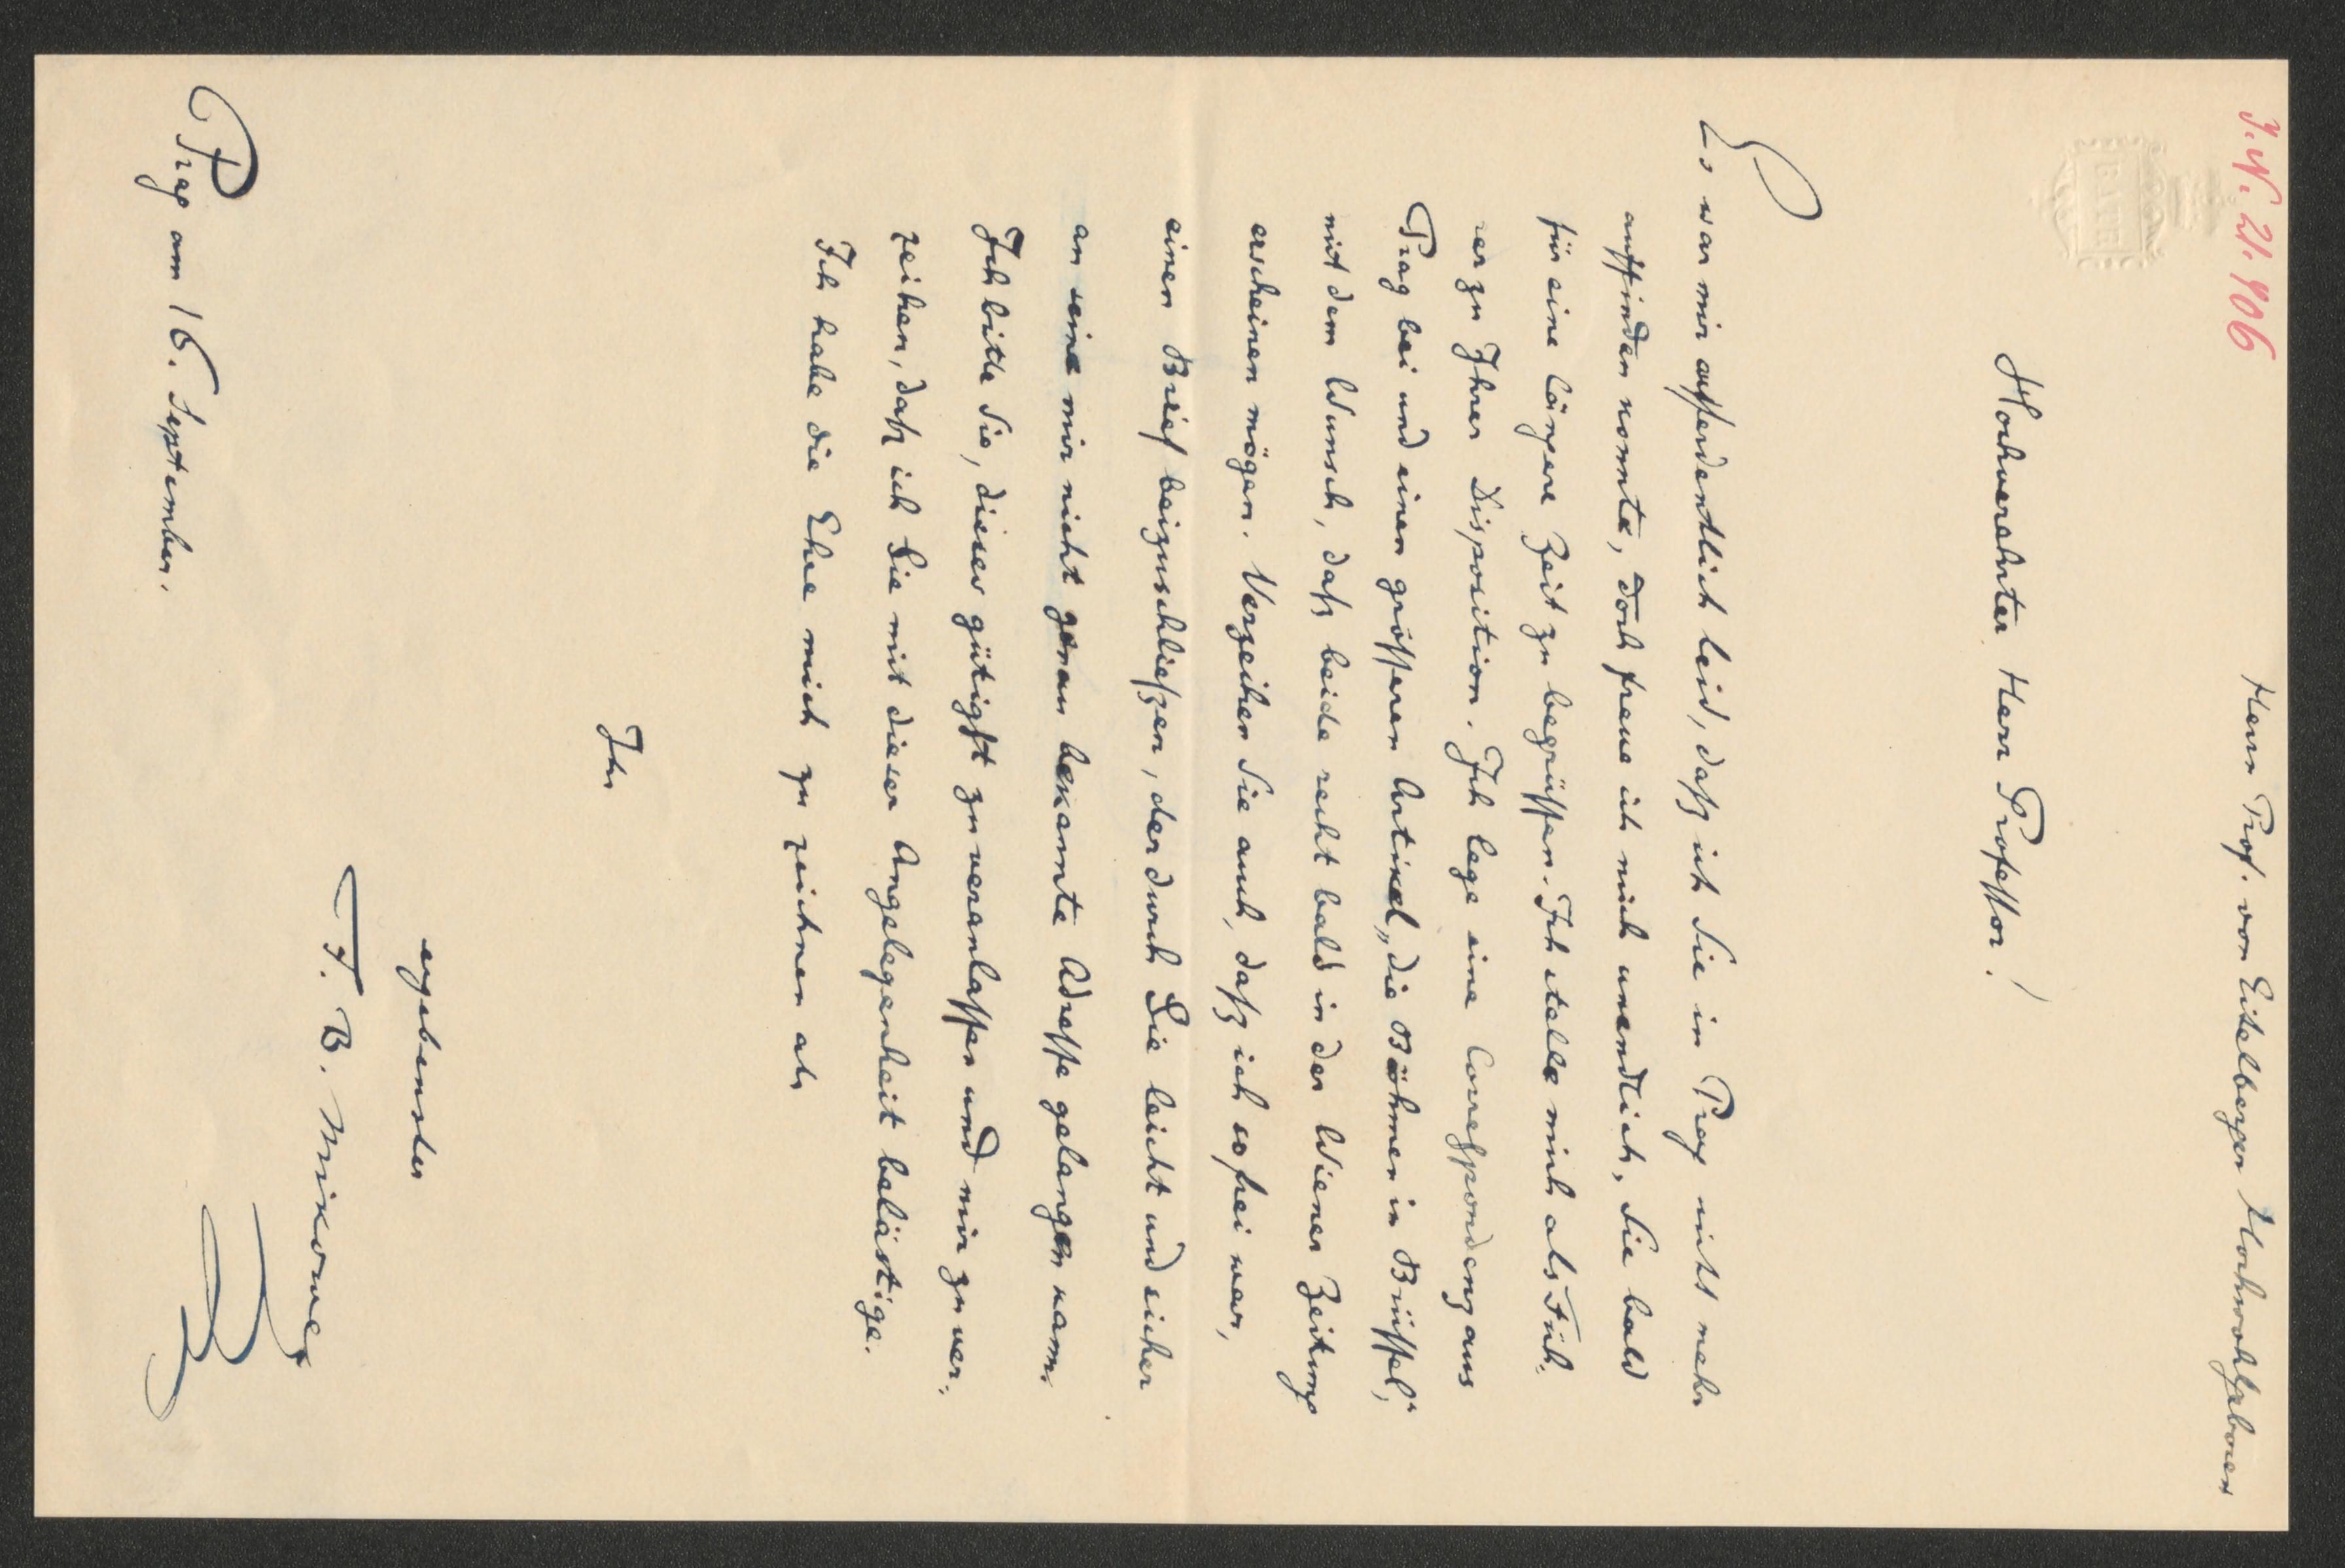 I. N. 21.906
Herrn Prof. von Eitelberger Hochwohlgeboren
BATH
Hochverehrter Herr Professor!
Es war mir ausserordentlich leid, daß ich Sie in Prag nicht mehr
auffinden konnte, doch freue ich mich unendlich, Sie bald
für eine längere Zeit zu begrüssen. Ich stelle mich als Füh-
rer zu Ihrer Disposition. Ich lege eine Correspondenz aus
Prag bei und einen grösseren Artikel „die Böhmen in Brüssel“,
mit dem Wunsch, daß beide recht bald in der Wiener Zeitung
erscheinen mögen. Verzeihen Sie auch, daß ich so frei war,
einen Brief beizuschließen, der durch Sie leicht und sicher
an seine mir nicht genau bekannte Adresse gelangen kann.
Ich bitte Sie, dieses gütigst zu veranlassen und mir zu ver-
zeihen, daß ich Sie mit dieser Angelegenheit belästige.
Ich habe die Ehre mich zu zeichnen als
Ihr
ergebenster
F. B. Mikovec
Prag am 16. September.